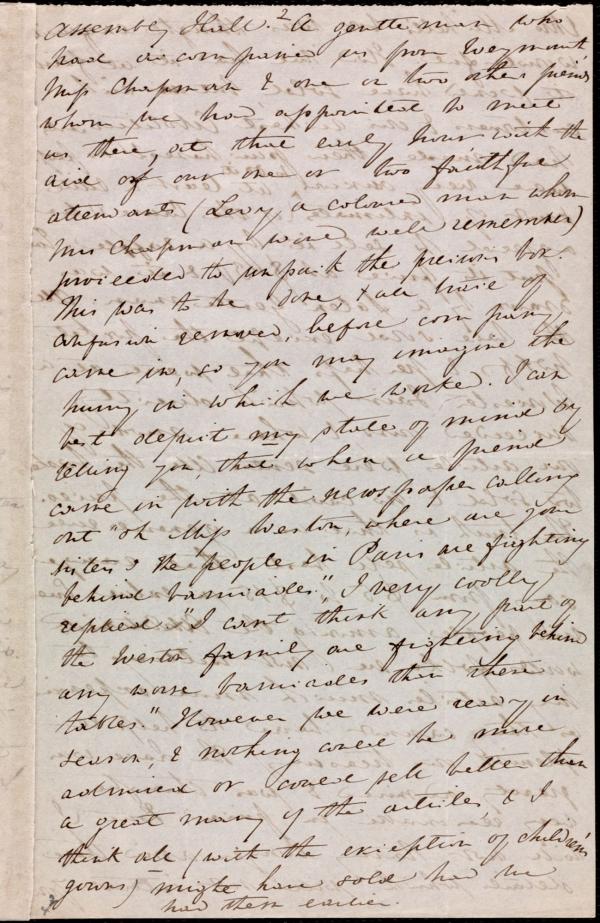 Assembly Hall.2 A gentleman who
had accompanied us from Weymouth
Miss Chapman & one or two other friends
whom we had appointed to meet
us there, at that early hour with the
aid of our one or two faithful
attendants (Levy, a coloured man whom
Mrs Chapman wd well remember)
proceeded to unpack the precious box.
This was to be done, & all trace of
confusion removed, before company
came in, so you may imagine the
hurry in which we worked. I can
best depict my state of mind by
telling you, that when a friend
came in with the newspaper calling
out "oh Miss Weston, where are your
sisters & the people in Paris are fighting
behind barricades", I very coolly
replied "I cant think any part of
the Weston family are fighting behind
any worse barricades than these
tables." However we were ready in
season, & nothing could be more
admired or could sell better than
a great many of the articles, & I
think all (with the exception of children's
gowns) might have sold had we
had them earlier.